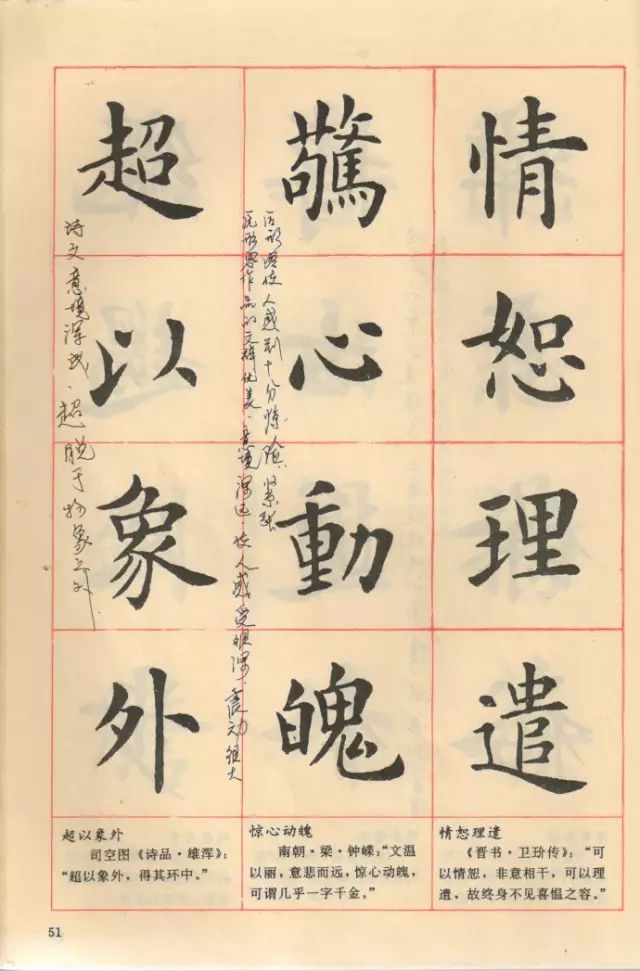 情恕理遣
驚心動魄
超以象外
后形容使人感到十分惊险、紧张
原形容作品的文辞优美、意境深远、使人感受很深、震动很大
诗文意境浑成、超脱于物象之外
情恕理遣
《晋书·卫玠传》：“可
以情恕，非意相干，可以理
遣，故终身不见喜愠之容。”
惊心动魄
南朝·梁·钟嵘：“文温
以丽，意悲而远，惊心动魄，
可谓几乎一字千金。”
超以象外
司空图《诗品·雄浑》：
“超以象外，得其环中。”
51